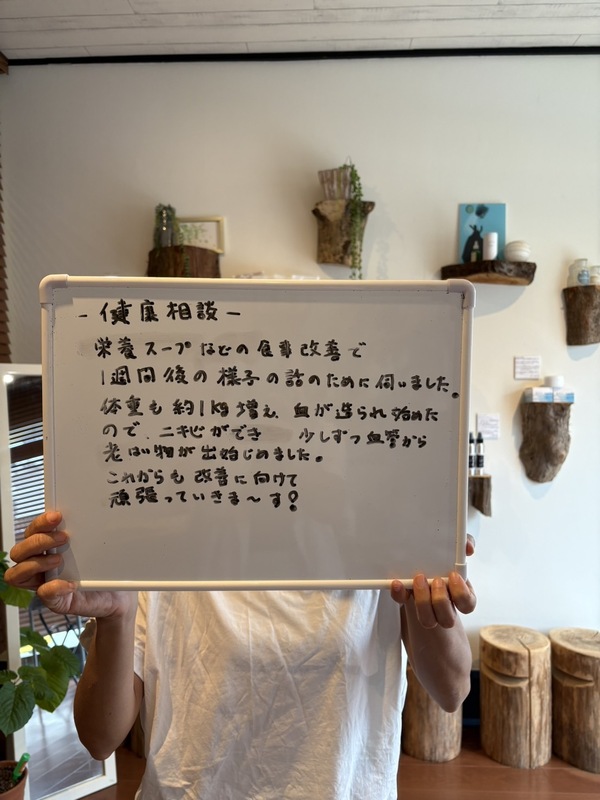 -健康相談-
栄養スープなどの食事改善で
1週間後の様子の話のために伺いました。
体重も約1kg増え、血が造られ始めた
ので、ニキビができ 少しずつ血管から
老はい物が出始じめました。
これからも改善に向けて
頑張っていきま〜す!